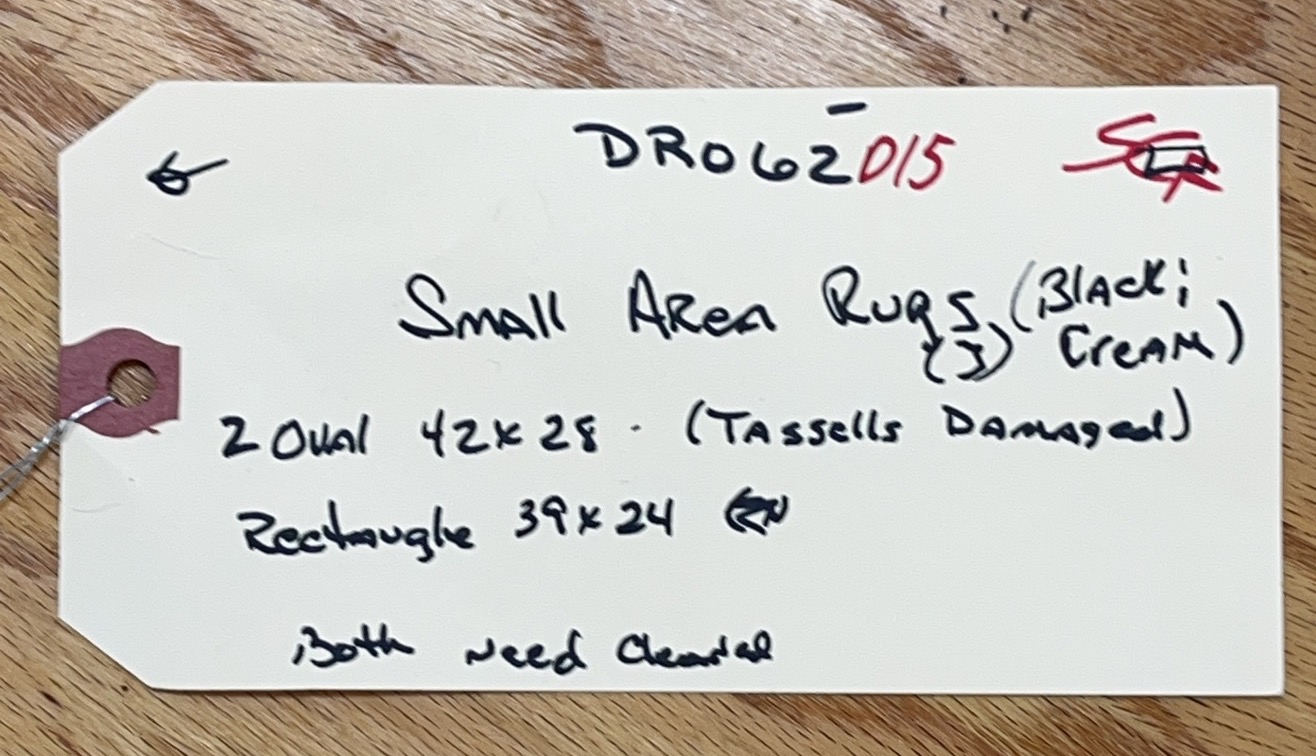 DR062-015
Small Area Rugs (Black;
(3) Cream)
2 Oval 42x28 · (Tassells Damaged)
Rectangle 39x24
Both Need